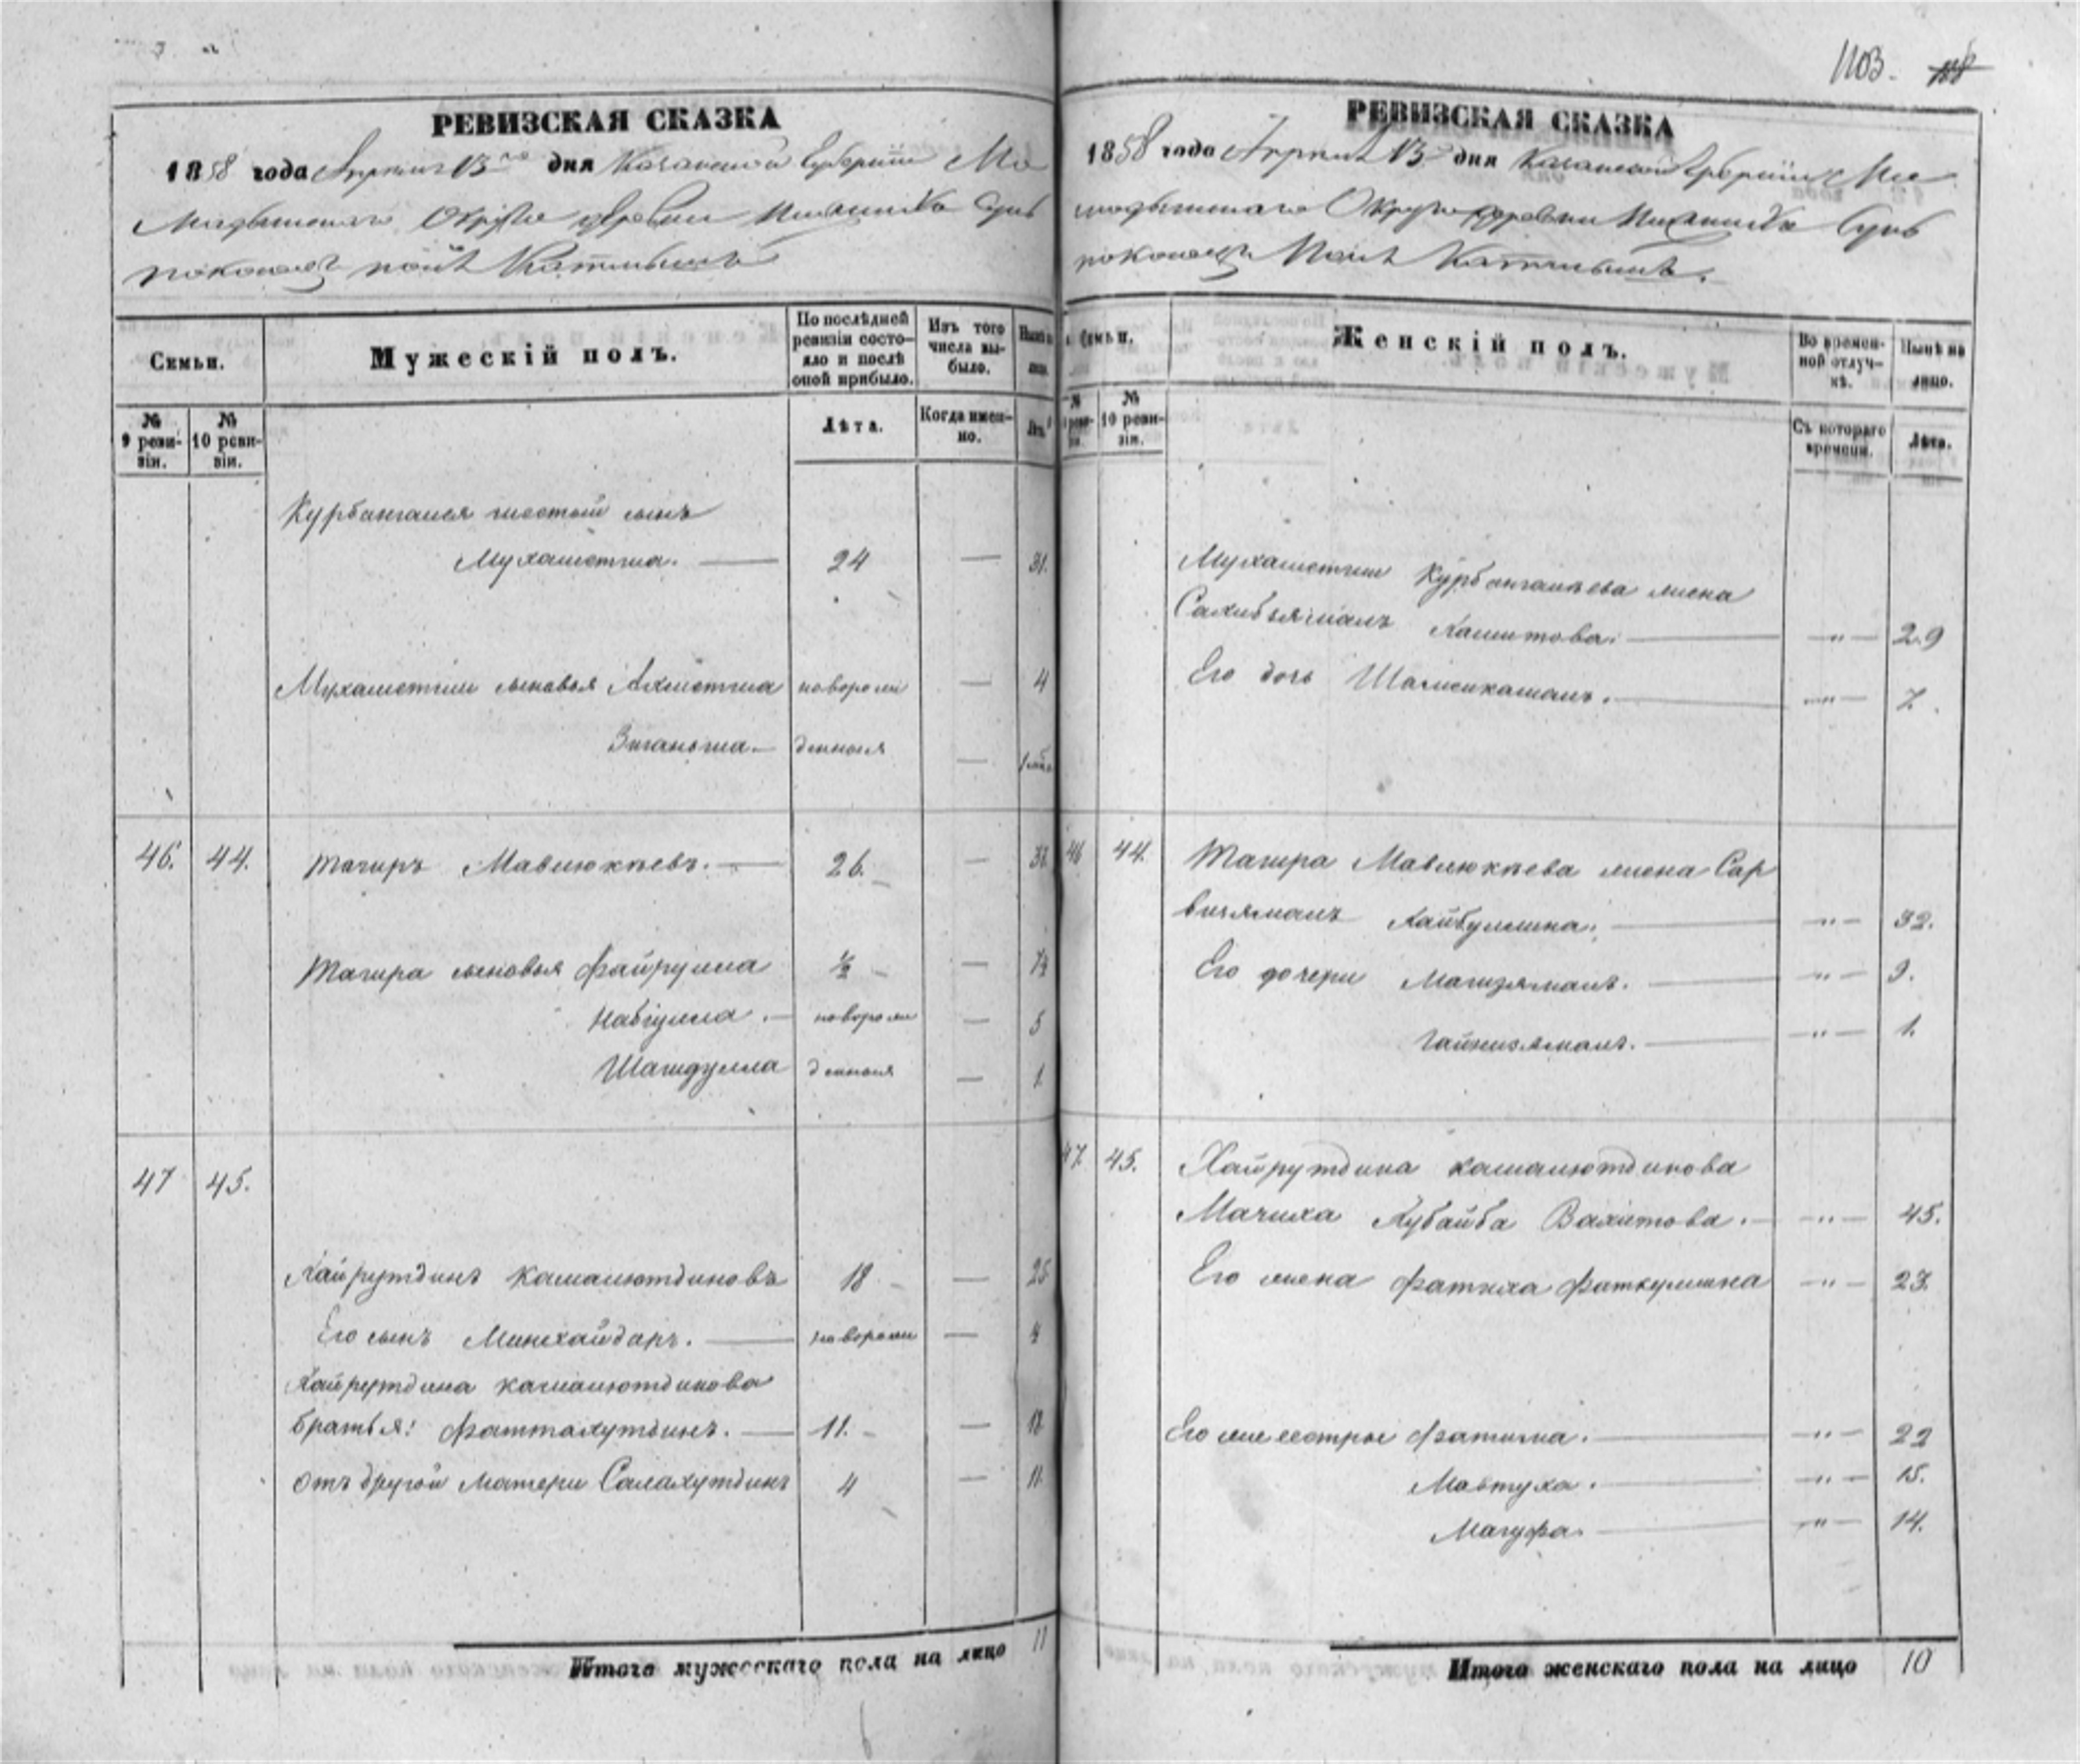 1103.
РЕВИЗСКАЯ СКАЗКА
1858 года Апреля 13го дня Казанской Губернiи Ма
мадышскаго Округа деревни
починка
Семьи.
Мужескiй полъ.
По послѣдней ревизiи состояло и послѣ оной прибыло.
Изъ того числа выбыло.
Нынѣ на лицо.
№ 9 ревизiи.
№ 10 ревизiи.
Лѣта.
Когда именно.
Лѣта
Курбангалея шестой сынъ
Мухаметша. 24 — 31.
Мухаметши сыновья Ахметша новорож — 4
Зиганьша — денныя — 1
46. 44. Тагиръ Мавлюкѣевъ. 26. —
Тагира сыновья Файрулла ½ — 7½
Набiулла. — новорож — 5
Шагидулла денныя — 1.
47 45.
Хайрутдинъ Камалютдиновъ 18 — 25
Его сынъ Минхайдаръ. новорож — 4
Хайрутдина Камалютдинова
братья: Фаттахутдинъ. 11. — 18
отъ другой матери Салахутдинъ 4 — 11.
Итого мужескаго пола на лицо 11
РЕВИЗСКАЯ СКАЗКА
1858 года Апреля 13 дня Казанской Губернiи Ма
мадышскаго Округа деревни
починка
Семьи.
Женскiй полъ.
Во временной отлучкѣ.
Нынѣ на лицо.
№ 9 ревизiи.
№ 10 ревизiи.
Съ котораго времени.
Лѣта.
Мухаметши Курбангалѣева жена
Сахибзямалъ Хамитова. — " — 29
Его дочь Шамсикамалъ. — " — 7.
46 44. Тагира Мавлюкѣева жена Сар
визямалъ Хайбуллина. — " — 32.
Его дочери Магизямалъ. — " — 9.
Гайнизямалъ. — " — 1.
47. 45. Хайрутдина Камалютдинова
Мачиха Хубайба Вахитова. — " — 45.
Его жена Фатиха Фаткуллина — " — 23.
Его же сестры Фатима. — " — 22
Мавтуха. — " — 15.
Магуфа. — " — 14.
Итого женскаго пола на лицо 10